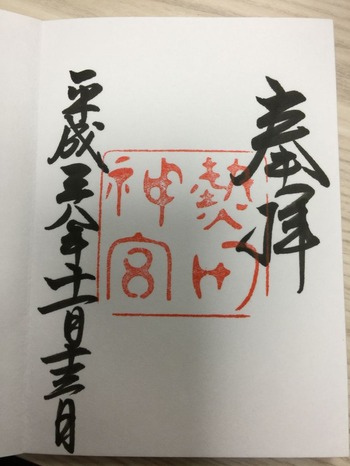 奉拝
熱田
神宮
平成二十八年十一月十三日